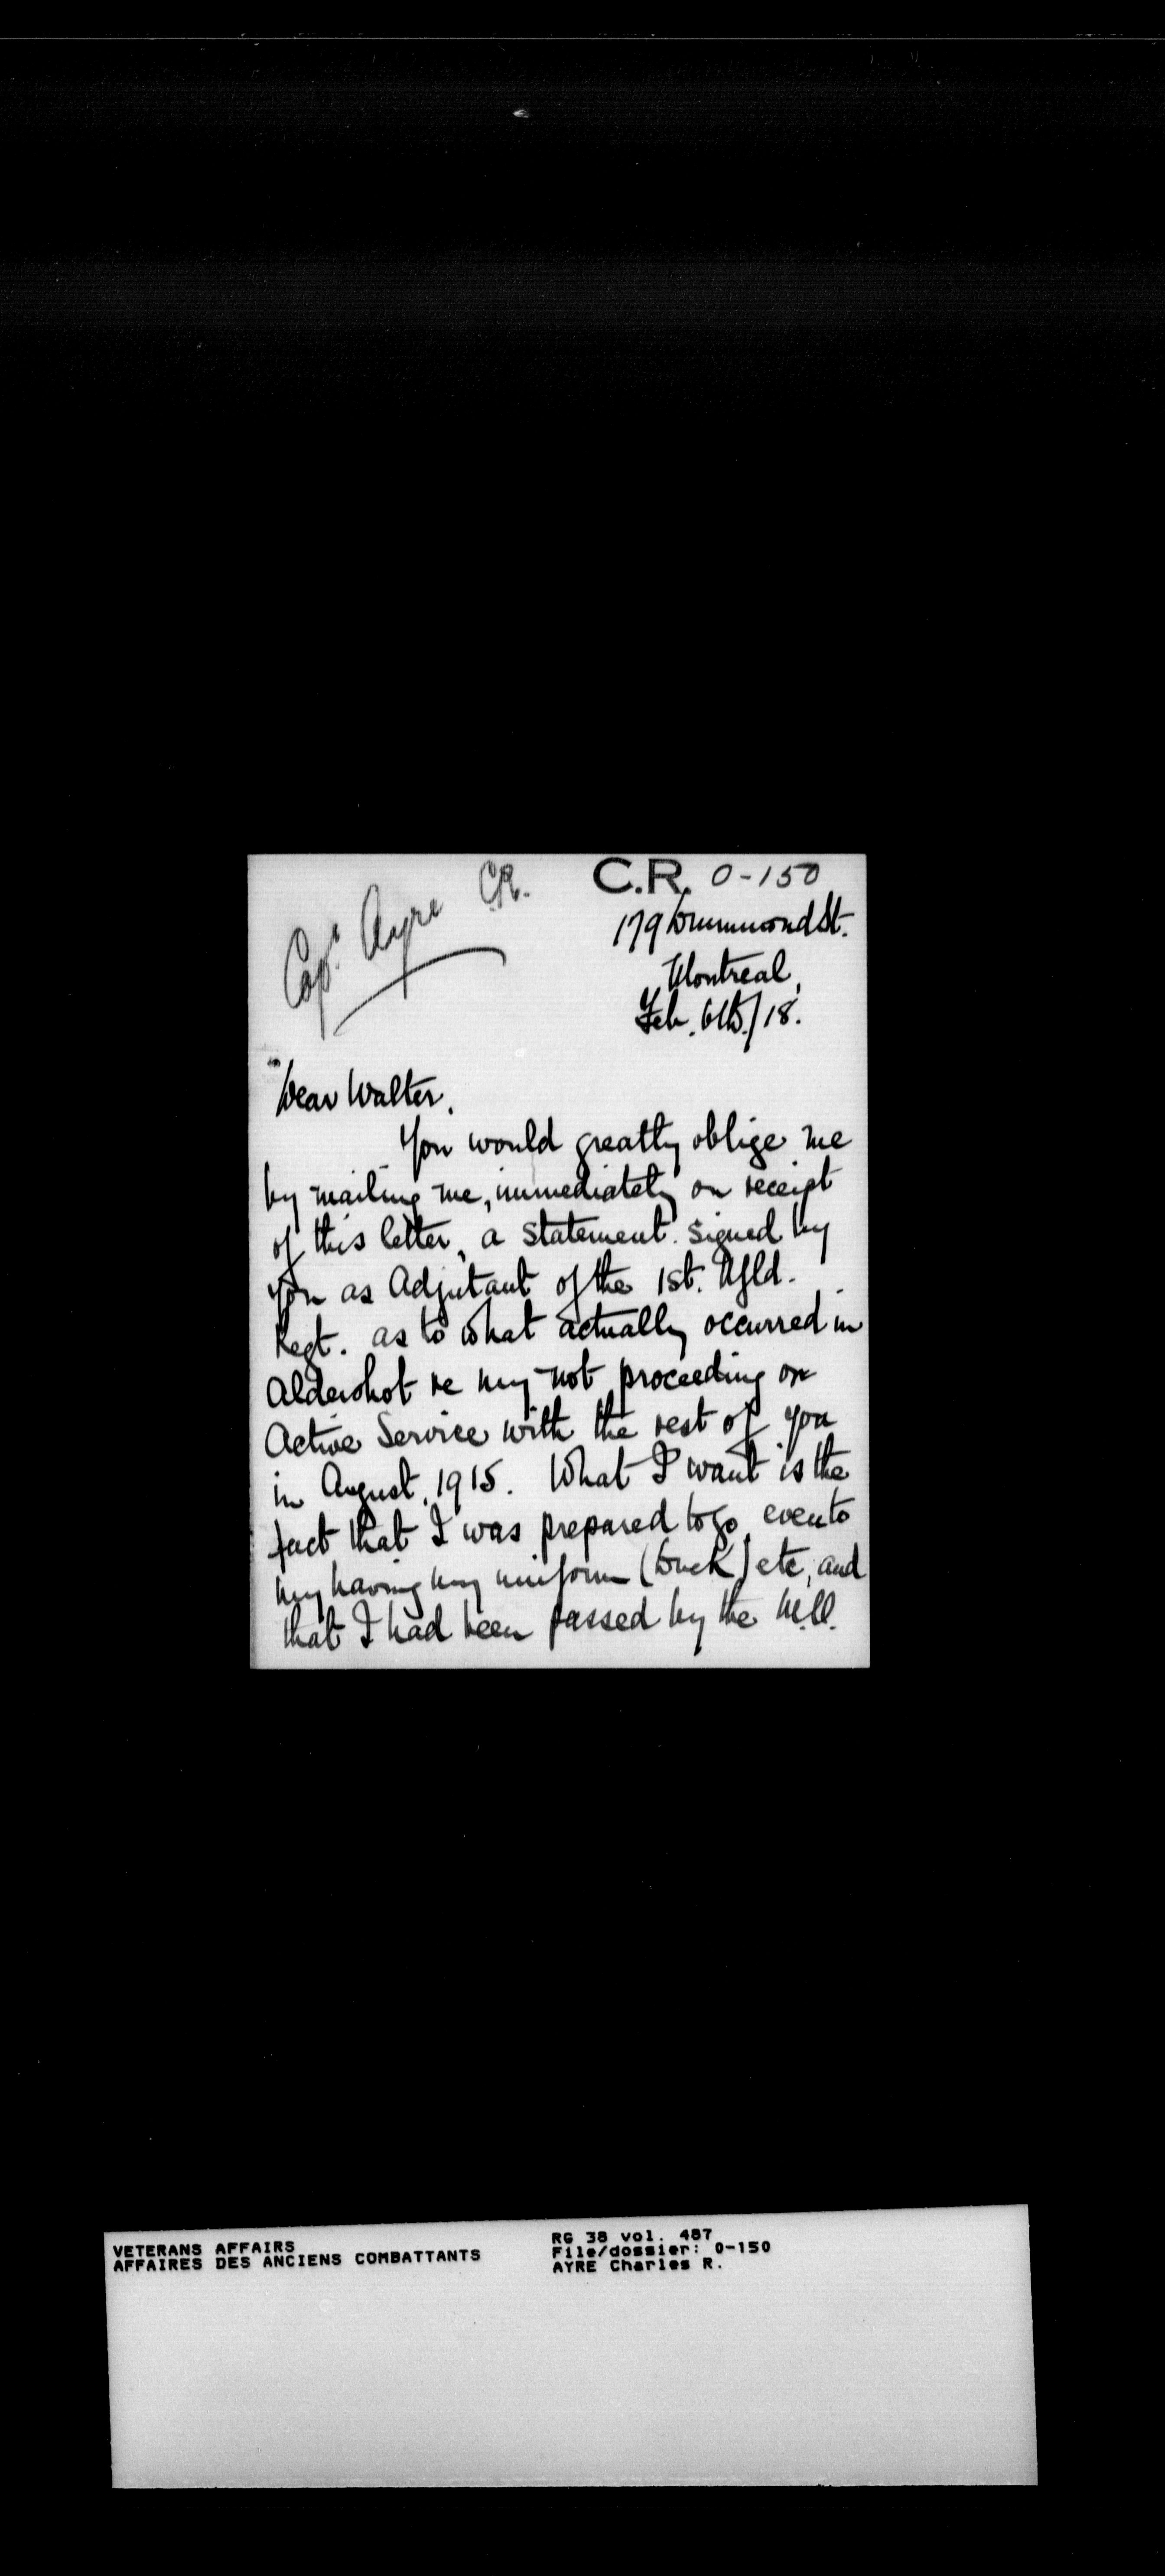 Capt Ayre C.R.
C.R. 0-150
179 Drummond St.
Montreal,
Feb. 6th/18.
Dear Walter,
You would greatly oblige me
by mailing me, immediately on receipt
of this letter, a statement signed by
you as Adjutant of the 1st. Nfld.
Regt. as to what actually occurred in
Aldershot re my not proceeding on
Active Service with the rest of you
in August, 1915. What I want is the
fact that I was prepared to go, even to
my having my uniform (Duck) etc, and
that I had been passed by the M.O.
VETERANS AFFAIRS
AFFAIRES DES ANCIENS COMBATTANTS
RG 38 vol. 487
File/dossier: 0-150
AYRE Charles R.